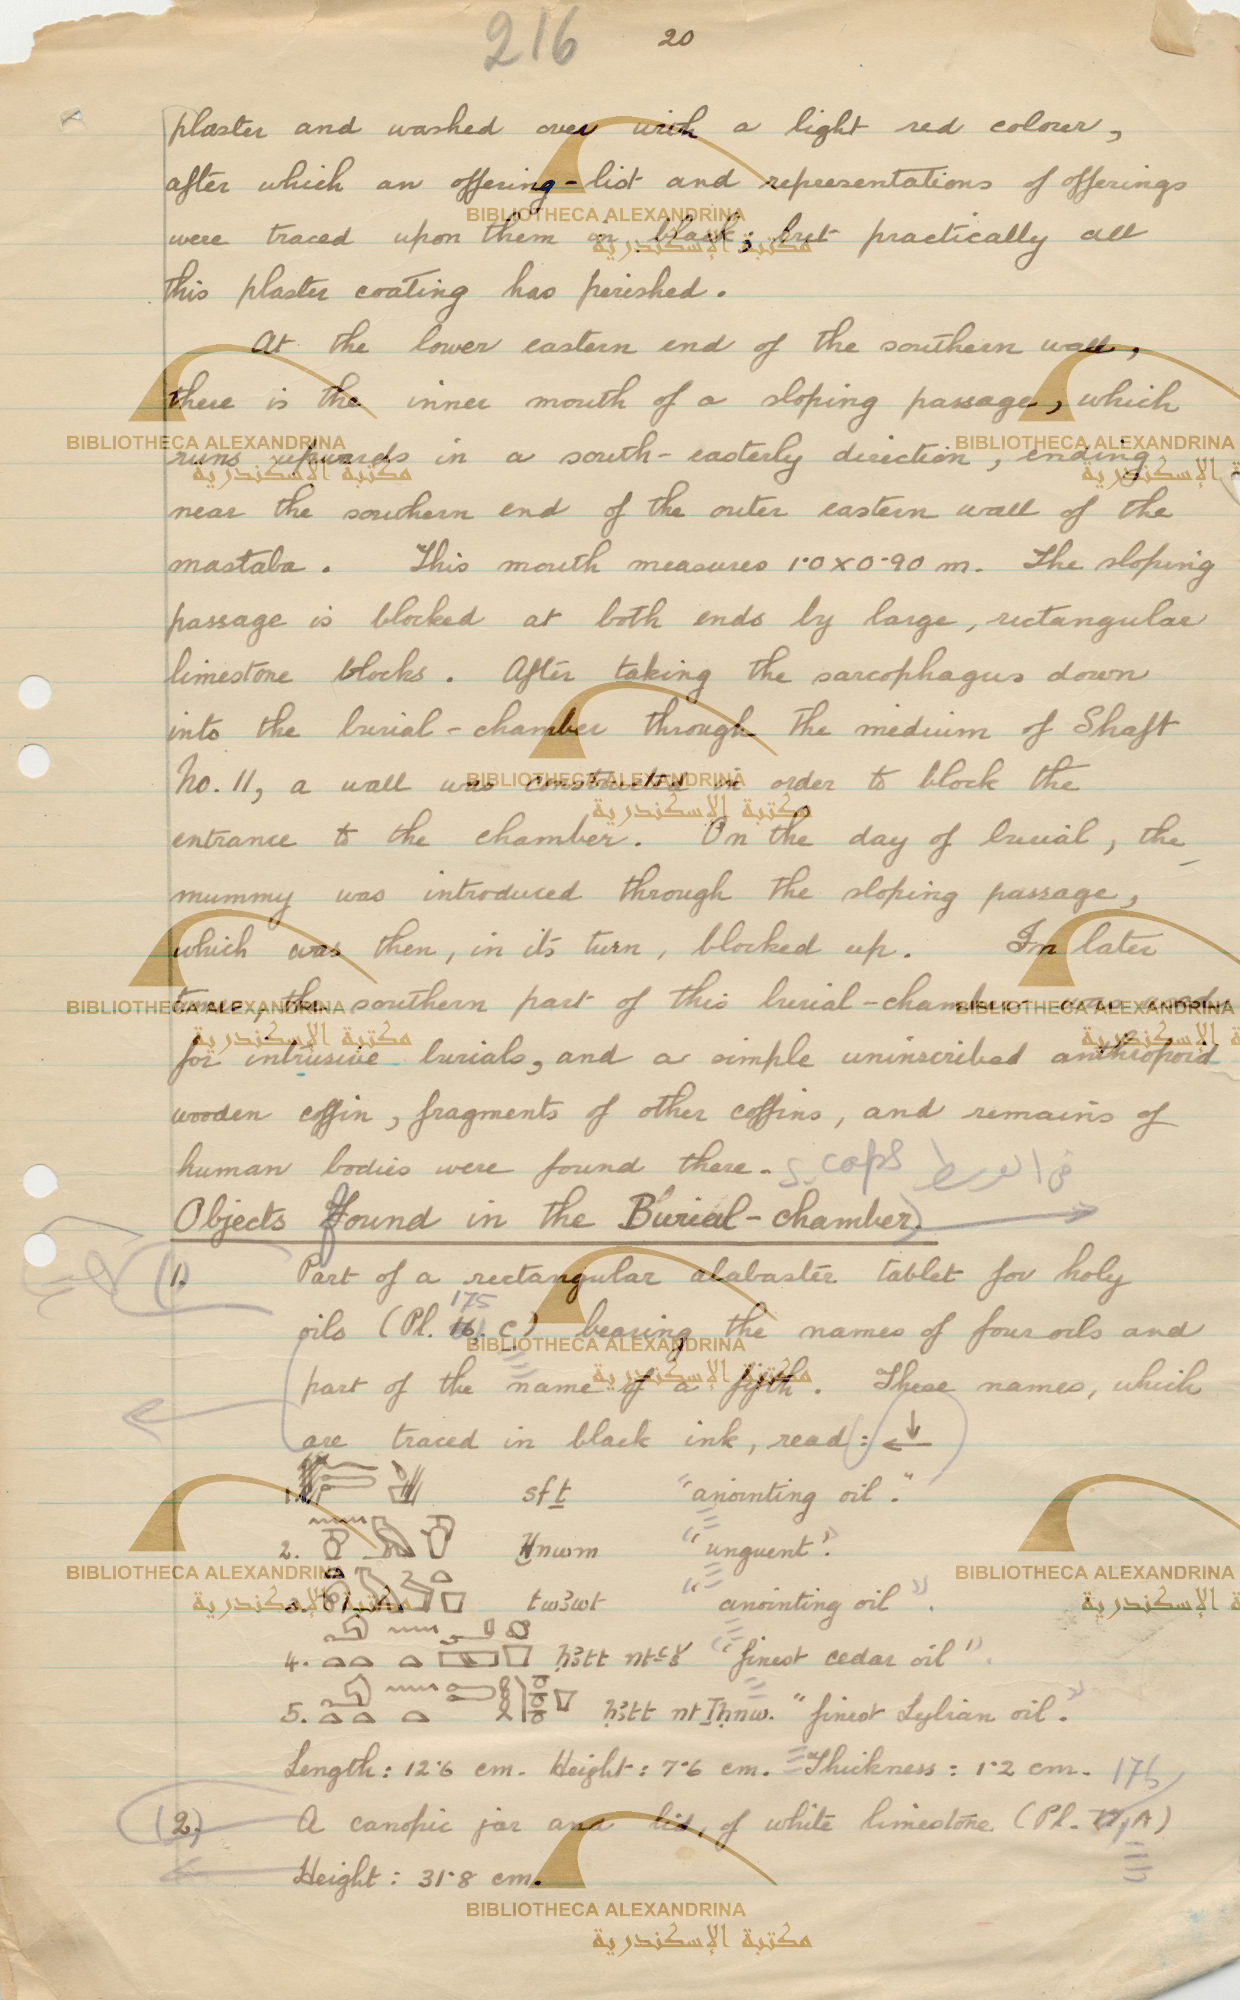 216 20
plaster and washed over with a light red colour,
after which an offering-list and representations of offerings
were traced upon them in black; but practically all
this plaster coating has perished.
At the lower eastern end of the southern wall,
there is the inner mouth of a sloping passage, which
runs upwards in a south-easterly direction, ending
near the southern end of the outer eastern wall of the
mastaba. This mouth measures 1·0 x 0·90 m. The sloping
passage is blocked at both ends by large, rectangular
limestone blocks. After taking the sarcophagus down
into the burial-chamber through the medium of Shaft
No. 11, a wall was constructed in order to block the
entrance to the chamber. On the day of burial, the
mummy was introduced through the sloping passage,
which was then, in its turn, blocked up. In later
times, the southern part of this burial-chamber was used
for intrusive burials, and a simple uninscribed anthropoid
wooden coffin, fragments of other coffins, and remains of
human bodies were found there. S. caps في الوسط
Objects Found in the Burial-chamber.
(1) Part of a rectangular alabaster tablet for holy
175
oils (Pl. 16. C) bearing the names of four oils and
part of the name of a fifth. These names, which
are traced in black ink, read: ↓←
1. sfṯ "anointing oil."
2. nwm "unguent".
3. twꜣwt "anointing oil".
4. ḥꜣtt nt ꜥš "finest cedar oil".
5. ḥꜣtt nt Ṯḥnw. "finest Lybian oil".
Length: 12·6 cm. Height: 7·6 cm. Thickness: 1·2 cm. 175
(2) A canopic jar and lid, of white limestone (Pl. 17, A)
Height: 31·8 cm.
BIBLIOTHECA ALEXANDRINA
مكتبة الإسكندرية